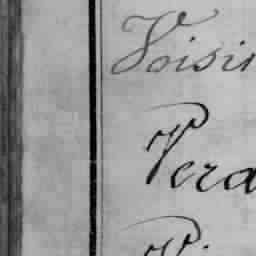 Voisin
Vera